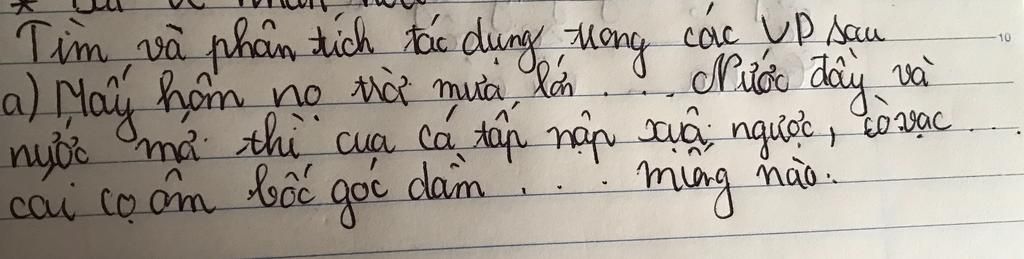 * Bài về nhân hoá
Tìm và phân tích tác dụng trong các VD sau
a) Mấy hôm nọ trời mưa lớn . . . . Nước đầy và
nước mới thì cua cá tấp nập xuôi ngược, cò vạc . . .
cãi cọ om bốc góc đầm . . . . miếng nào.
10